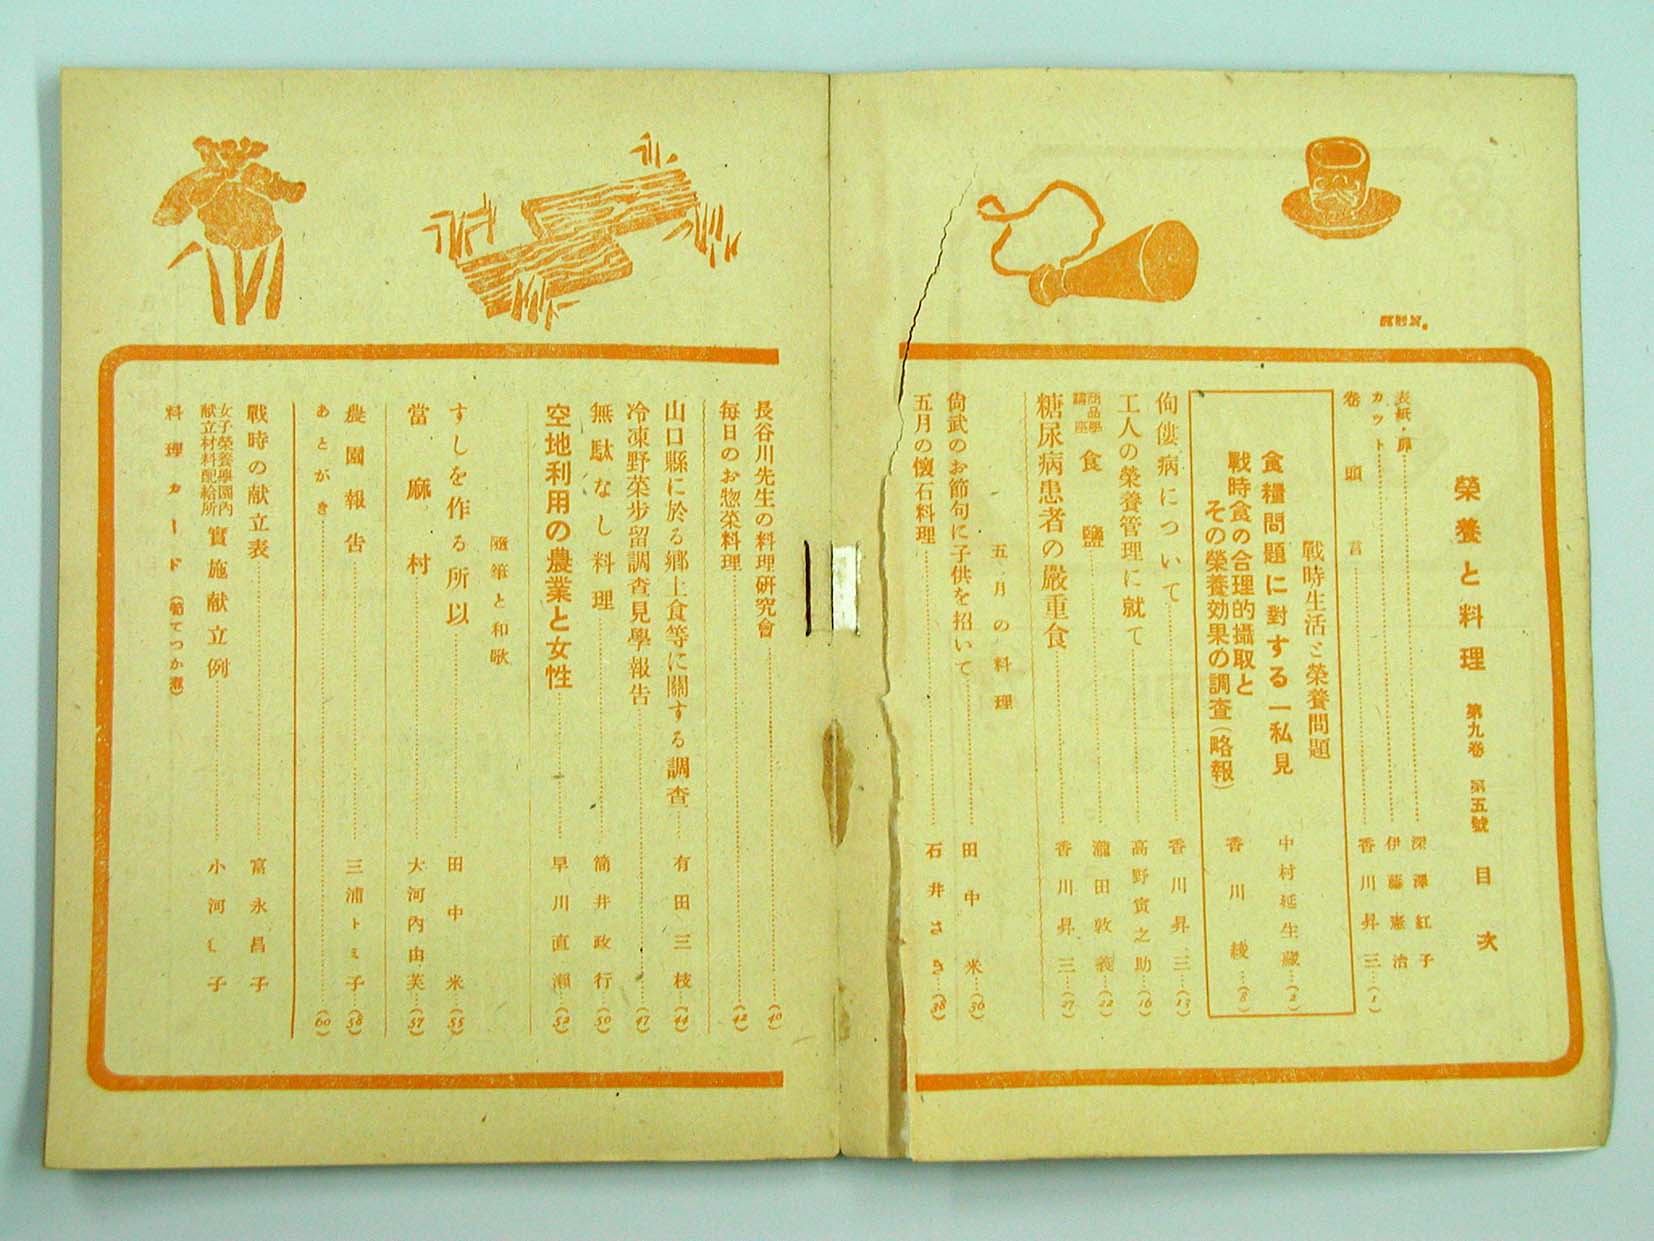 榮養と料理 第九卷 第五號 目次
表紙・扉……深澤紅子
カット……伊藤憲治
卷頭言……香川昇三…(1)
戰時生活と榮養問題
食糧問題に對する一私見 中村延生藏…(2)
戰時食の合理的攝取と
その榮養効果の調査(略報) 香川綾…(8)
佝僂病について……香川昇三…(13)
工人の榮養管理に就て……高野實之助…(16)
商品學講座 食鹽……瀧田敦義…(22)
糖尿病患者の嚴重食……香川昇三…(27)
五月の料理
尚武のお節句に子供を招いて……田中米…(36)
五月の懷石料理……石井さき…(38)
長谷川先生の料理研究會……(40)
每日のお惣菜料理……(42)
山口縣に於る郷土食等に關する調査……有田三枝…(44)
冷凍野菜步留調査見學報告……(47)
無駄なし料理……筒井政行…(50)
空地利用の農業と女性……早川直瀨…(52)
隨筆と和歌
すしを作る所以……田中米…(55)
當麻村……大河內由芙…(57)
農園報告……三浦トミ子…(58)
あとがき……(60)
戰時の献立表……富永昌子
女子榮養學園內
献立材料配給所 實施献立例……小河子
料理カード